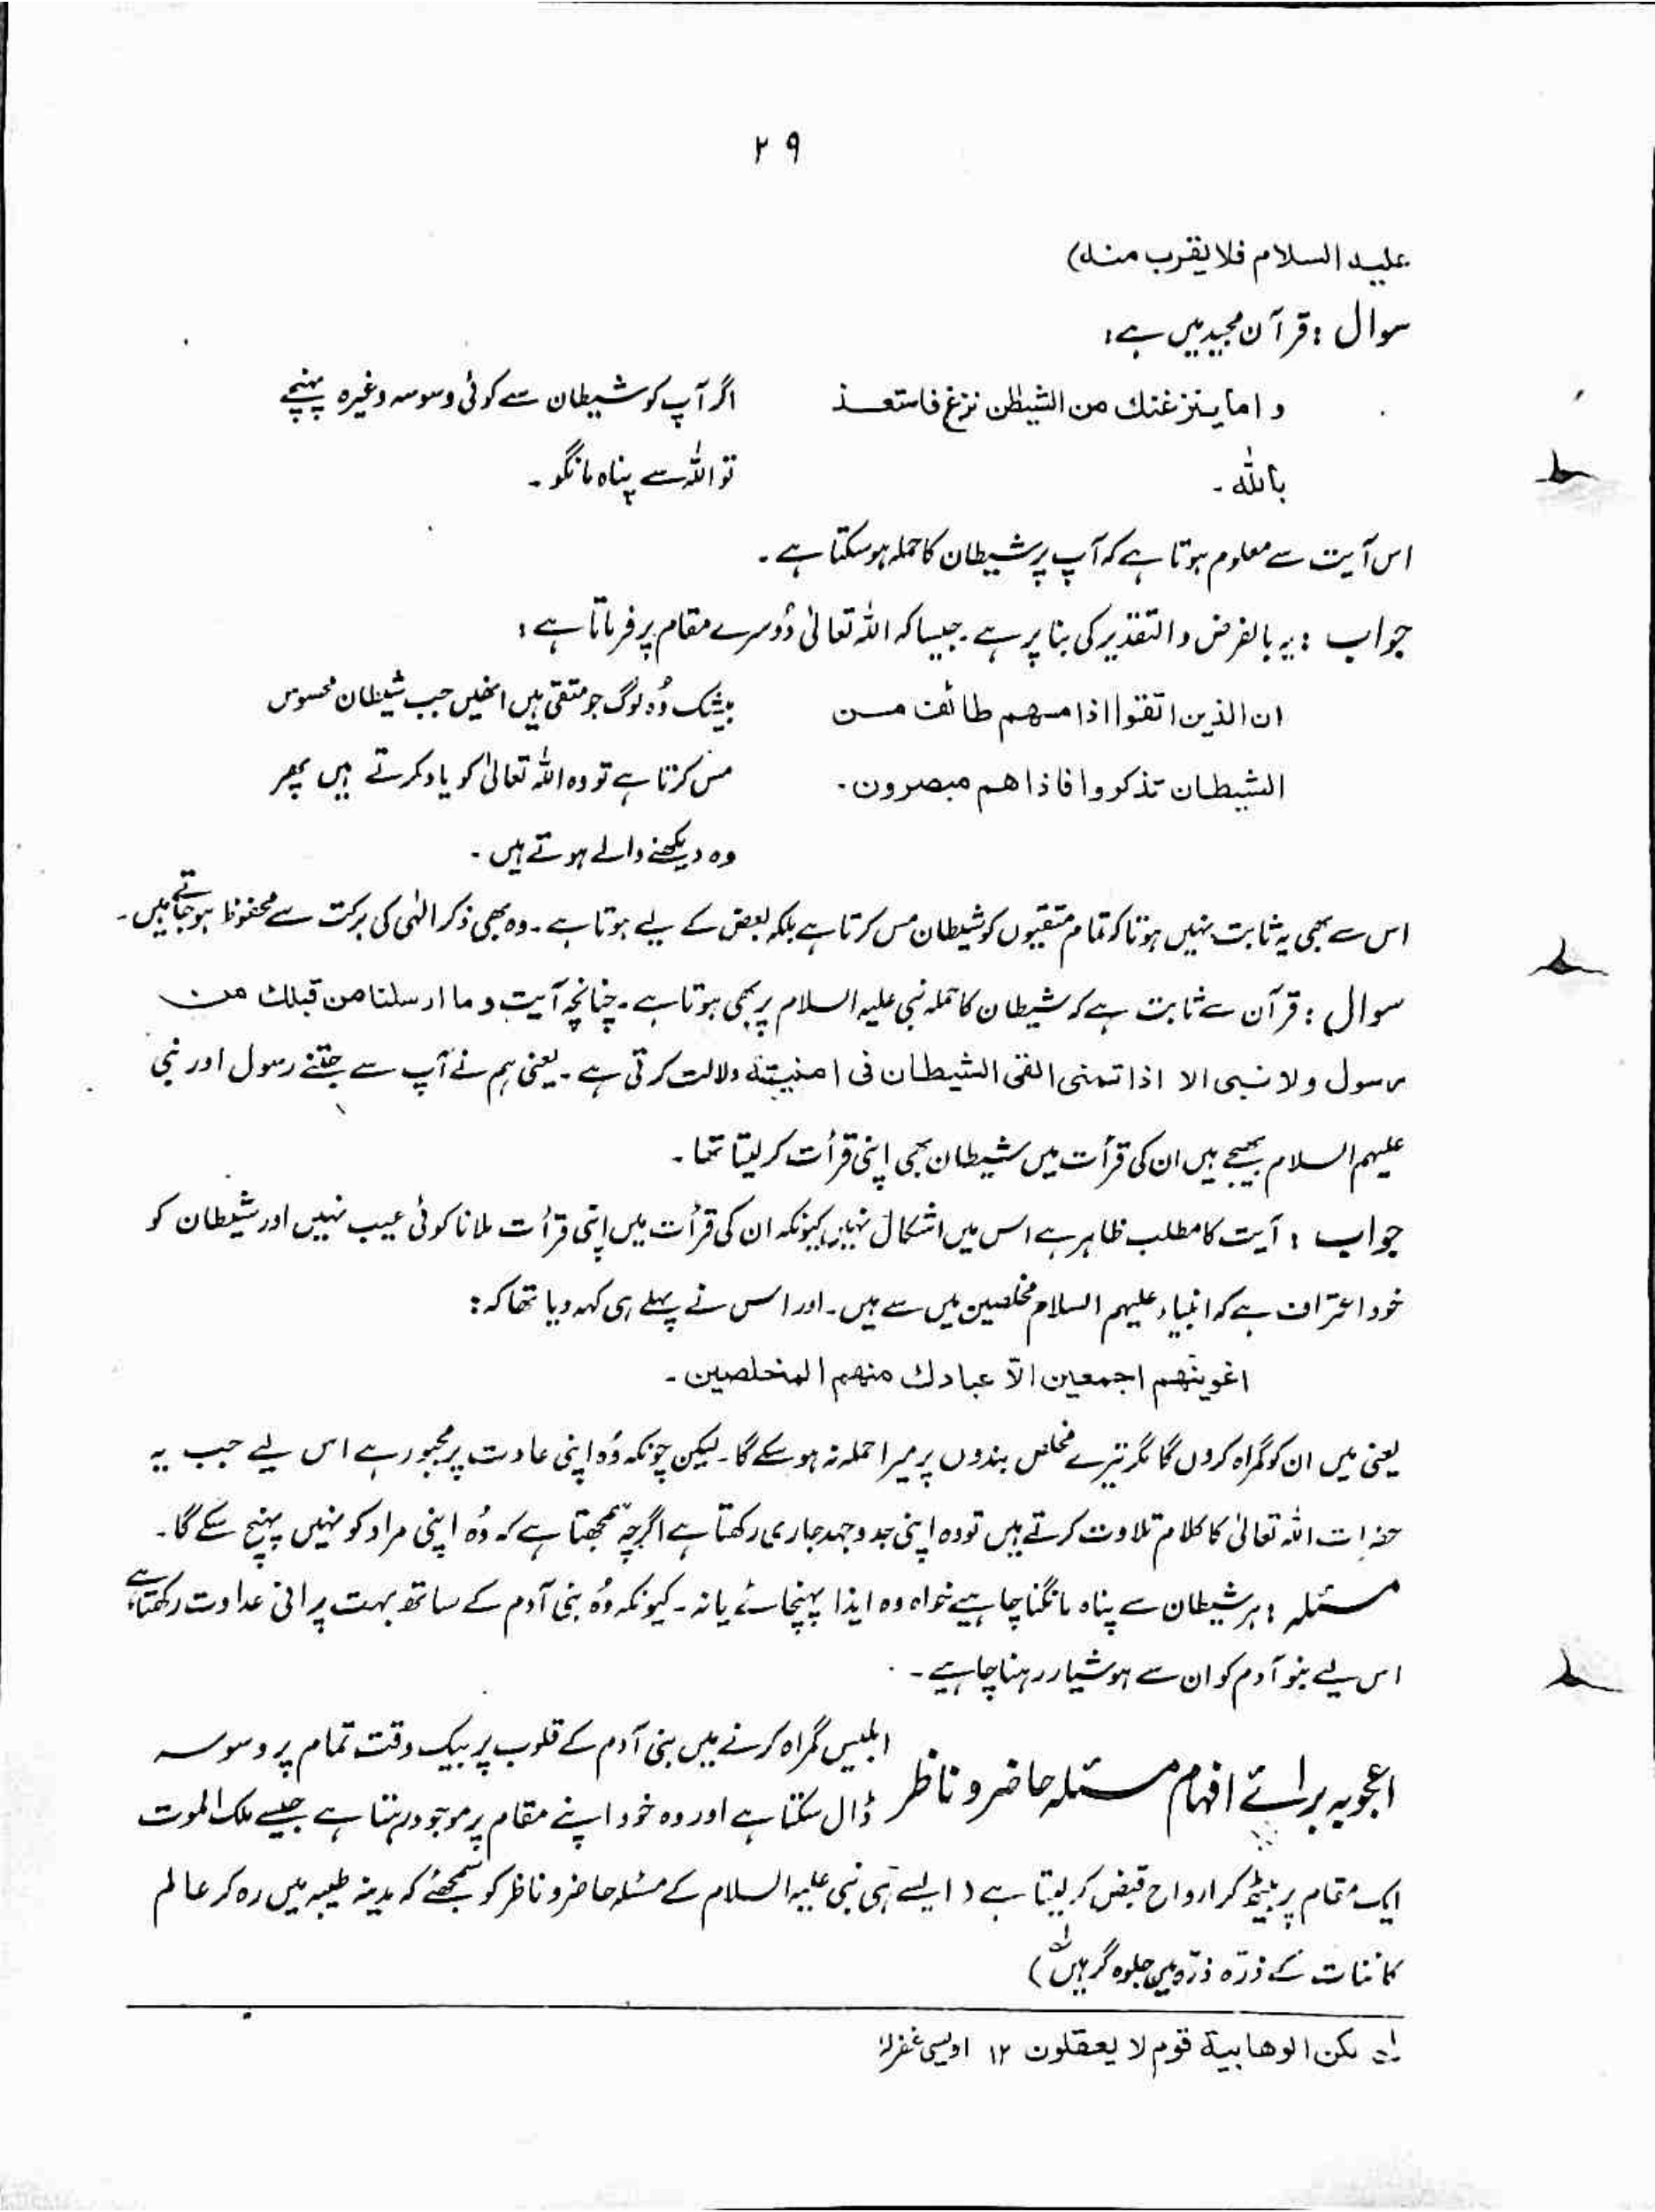 ۲۹
علیہ السلام فلا یقرب منہ)
سوال : قرآن مجید میں ہے :
و اما ینزغنك من الشیطٰن نزغ فاستعـذ
باللّٰه ۔
اگر آپ کو شیطان سے کوئی وسوسہ وغیرہ پہنچے
تو اللہ سے پناہ مانگو ۔
اس آیت سے معلوم ہوتا ہے کہ آپ پر شیطان کا حملہ ہو سکتا ہے ۔
جواب : یہ بالفرض و التقدیر کی بنا پر ہے ۔ جیسا کہ اللہ تعالیٰ دُوسرے مقام پر فرماتا ہے :
ان الذین اتقوا اذا مسهم طائف مـن
الشیطان تذکروا فاذا هم مبصرون ۔
بیشک وُہ لوگ جو متقی ہیں انھیں جب شیطان محسوس
مس کرتا ہے تو وہ اللہ تعالیٰ کو یاد کرتے ہیں پھر
وہ دیکھنے والے ہوتے ہیں ۔
اس سے بھی یہ ثابت نہیں ہوتا کہ تمام متقیوں کو شیطان مس کرتا ہے بلکہ بعض کے لیے ہوتا ہے ۔ وہ بھی ذکر الٰہی کی برکت سے محفوظ ہو جاتے ہیں ۔
سوال : قرآن سے ثابت ہے کہ شیطان کا حملہ نبی علیہ السلام پر بھی ہوتا ہے ۔ چنانچہ آیت و ما ارسلنا من قبلك من
رسول ولا نبی الا اذا تمنی القی الشیطان فی امنیته دلالت کرتی ہے ۔ یعنی ہم نے آپ سے جتنے رسول اور نبی
علیہم السلام بھیجے ہیں ان کی قرأت میں شیطان بھی اپنی قرأت کر لیتا تھا ۔
جواب : آیت کا مطلب ظاہر ہے اس میں اشکال نہیں کیونکہ ان کی قرأت میں اپنی قرأت ملانا کوئی عیب نہیں اور شیطان کو
خود اعتراف ہے کہ انبیاء علیہم السلام مخلصین میں سے ہیں ۔ اور اس نے پہلے ہی کہہ دیا تھا کہ :
اغوینّهم اجمعین الّا عبادك منهم المخلصین ۔
یعنی میں ان کو گمراہ کروں گا مگر تیرے مخلص بندوں پر میرا حملہ نہ ہو سکے گا ۔ لیکن چونکہ وُہ اپنی عادت پر مجبور ہے اس لیے جب یہ
حضرات اللہ تعالیٰ کا کلام تلاوت کرتے ہیں تو وہ اپنی جدوجہد جاری رکھتا ہے اگرچہ سمجھتا ہے کہ وُہ اپنی مراد کو نہیں پہنچ سکے گا ۔
مسئلہ : ہر شیطان سے پناہ مانگنا چاہیے خواہ وہ ایذا پہنچائے یا نہ ۔ کیونکہ وُہ بنی آدم کے ساتھ بہت پرانی عداوت رکھتا ہے،
اس لیے بنو آدم کو ان سے ہوشیار رہنا چاہیے ۔
اعجوبہ برائے افہام مسئلہ حاضر و ناظر ابلیس گمراہ کرنے میں بنی آدم کے قلوب پر بیک وقت تمام پر وسوسہ
ڈال سکتا ہے اور وہ خود اپنے مقام پر موجود رہتا ہے جیسے ملک الموت
ایک مقام پر بیٹھ کر ارواح قبض کر لیتا ہے ( ایسے ہی نبی علیہ السلام کے مسئلہ حاضر و ناظر کو سمجھئے کہ مدینہ طیبہ میں رہ کر عالم
کائنات کے ذرّہ ذرّہ میں جلوہ گر ہیں لہ )
لہ لکن الوهابیة قوم لا یعقلون ۱۲ اویسی غفرلہٗ